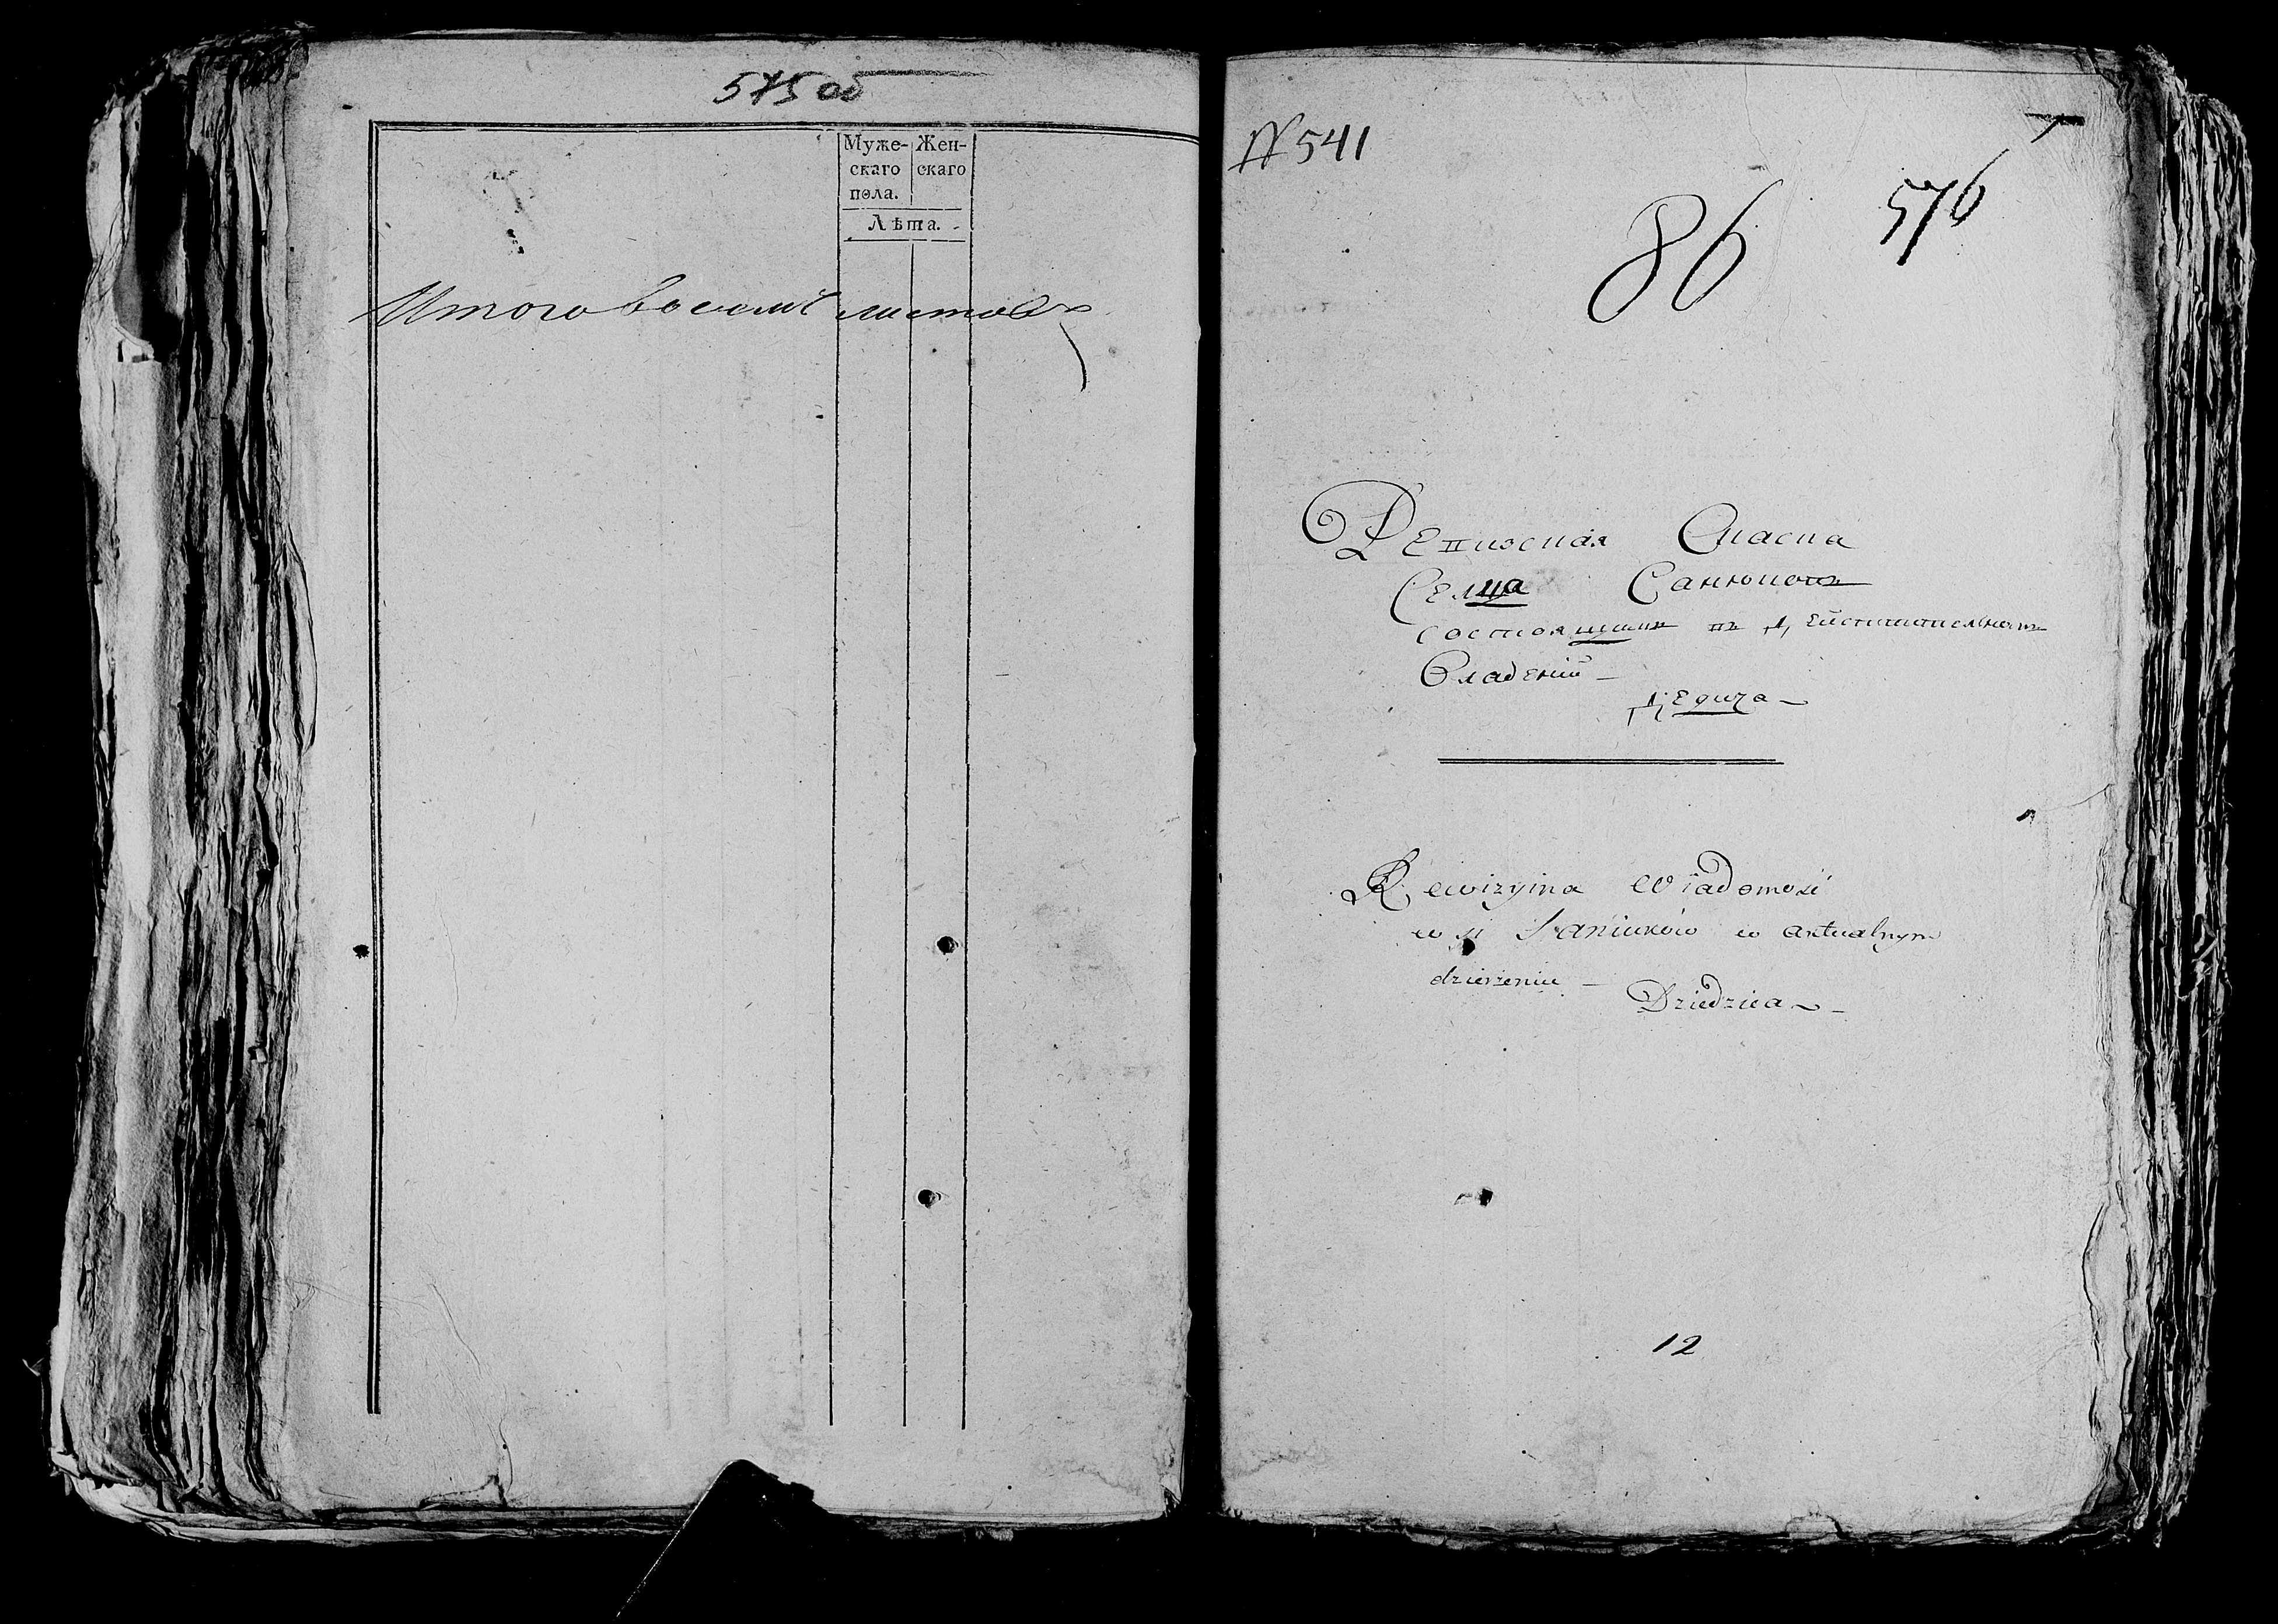 575 об
Муже-
скаго
пола.
Жен-
скаго
Лѣта.
Итого восемь листовъ
N 541
86
576
Ревизская Сказка
Селца Санюковъ
состоящихъ въ Действительномъ
Владении
Дедича
Rewizyina Wiadomość
wsi Saniuków w aktualnym
dzierżeniu
Dziedzica
12